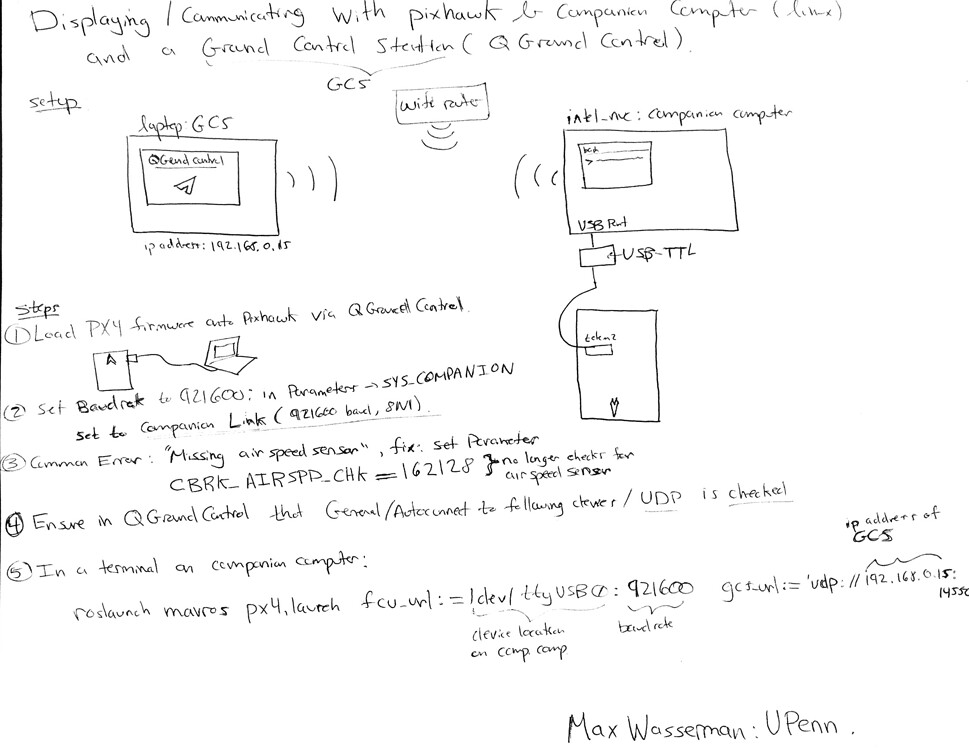 Displaying / Communicating with pixhawk & Companion Computer (linux)
and a Ground Control Station ( Q Ground Control ).
GCS
setup
wifi router
laptop: GCS
QGround control
ip address: 192.168.0.15
intel_nuc: companion computer
bash
>
USB Port
USB-TTL
telem2
Steps
① Load PX4 firmware onto Pixhawk via Q Ground Control.
② Set Baudrate to 921600: in Parameters → SYS_COMPANION
set to Companion Link ( 921600 baud, 8N1).
③ Common Error: "Missing air speed sensor", fix: set Parameter
CBRK_AIRSPD_CHK = 162128 } no longer checks for
air speed sensor
④ Ensure in Q Ground Control that General/Autoconnect to following devices / UDP is checked
ip address of
GCS
⑤ In a terminal on companion computer:
roslaunch mavros px4.launch fcu_url:=/dev/ttyUSB0:921600 gcs_url:='udp://192.168.0.15:
14550
device location
on comp comp
baud rate
Max Wasserman: UPenn.